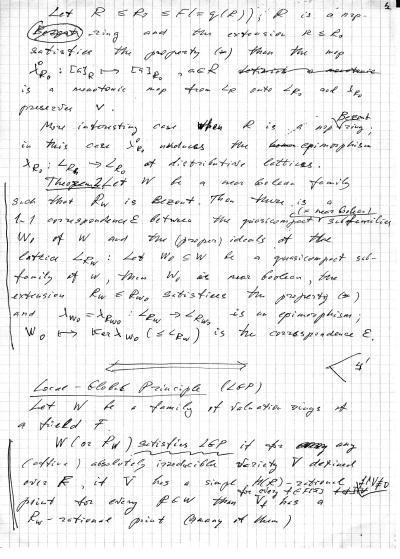 Let R ≤ R₀ ≤ F(= q(R)); R is a nop-
Bezout ring and the extension R ≤ R₀
satisfies the property (∗) then the map
λ°_{R₀} : [a]_R ↦ [a]_{R₀}, a∈R
is a monotonic map from L_R onto L_{R₀} and λ_{R₀}
preserves ∨.
More interesting case when R is a Bezout ring;
in this case λ°_{R₀} induces the epimorphism
λ_{R₀} : L_R → L_{R₀} of distributive lattices.
Theorem 2 Let W be a near boolean family
such that R_W is Bezout. Then there is a
1-1 correspondence ℰ between the quasicompact (= near boolean) subfamilies
W₀ of W and the (proper) ideals of the
lattice L_{R_W} : Let W₀ ⊆ W be a quasicompact sub-
family of W, then W₀ is near boolean, the
extension R_W ≤ R_{W₀} satisfies the property (∗)
and λ_{W₀} = λ_{R_{W₀}} : L_{R_W} → L_{R_{W₀}} is an epimorphism;
W₀ ↦ Ker λ_{W₀} (≤ L_{R_W}) is the correspondence ℰ.
Local-Global Principle (LGP)
Let W be a family of valuation rings of
a field F.
W (or R_W) satisfies LGP if for any
(affine) absolutely irreducible variety V defined
over F, if V has a simple H(R)-rational
point for every R∈W than V has a
R_W-rational point (many of them)